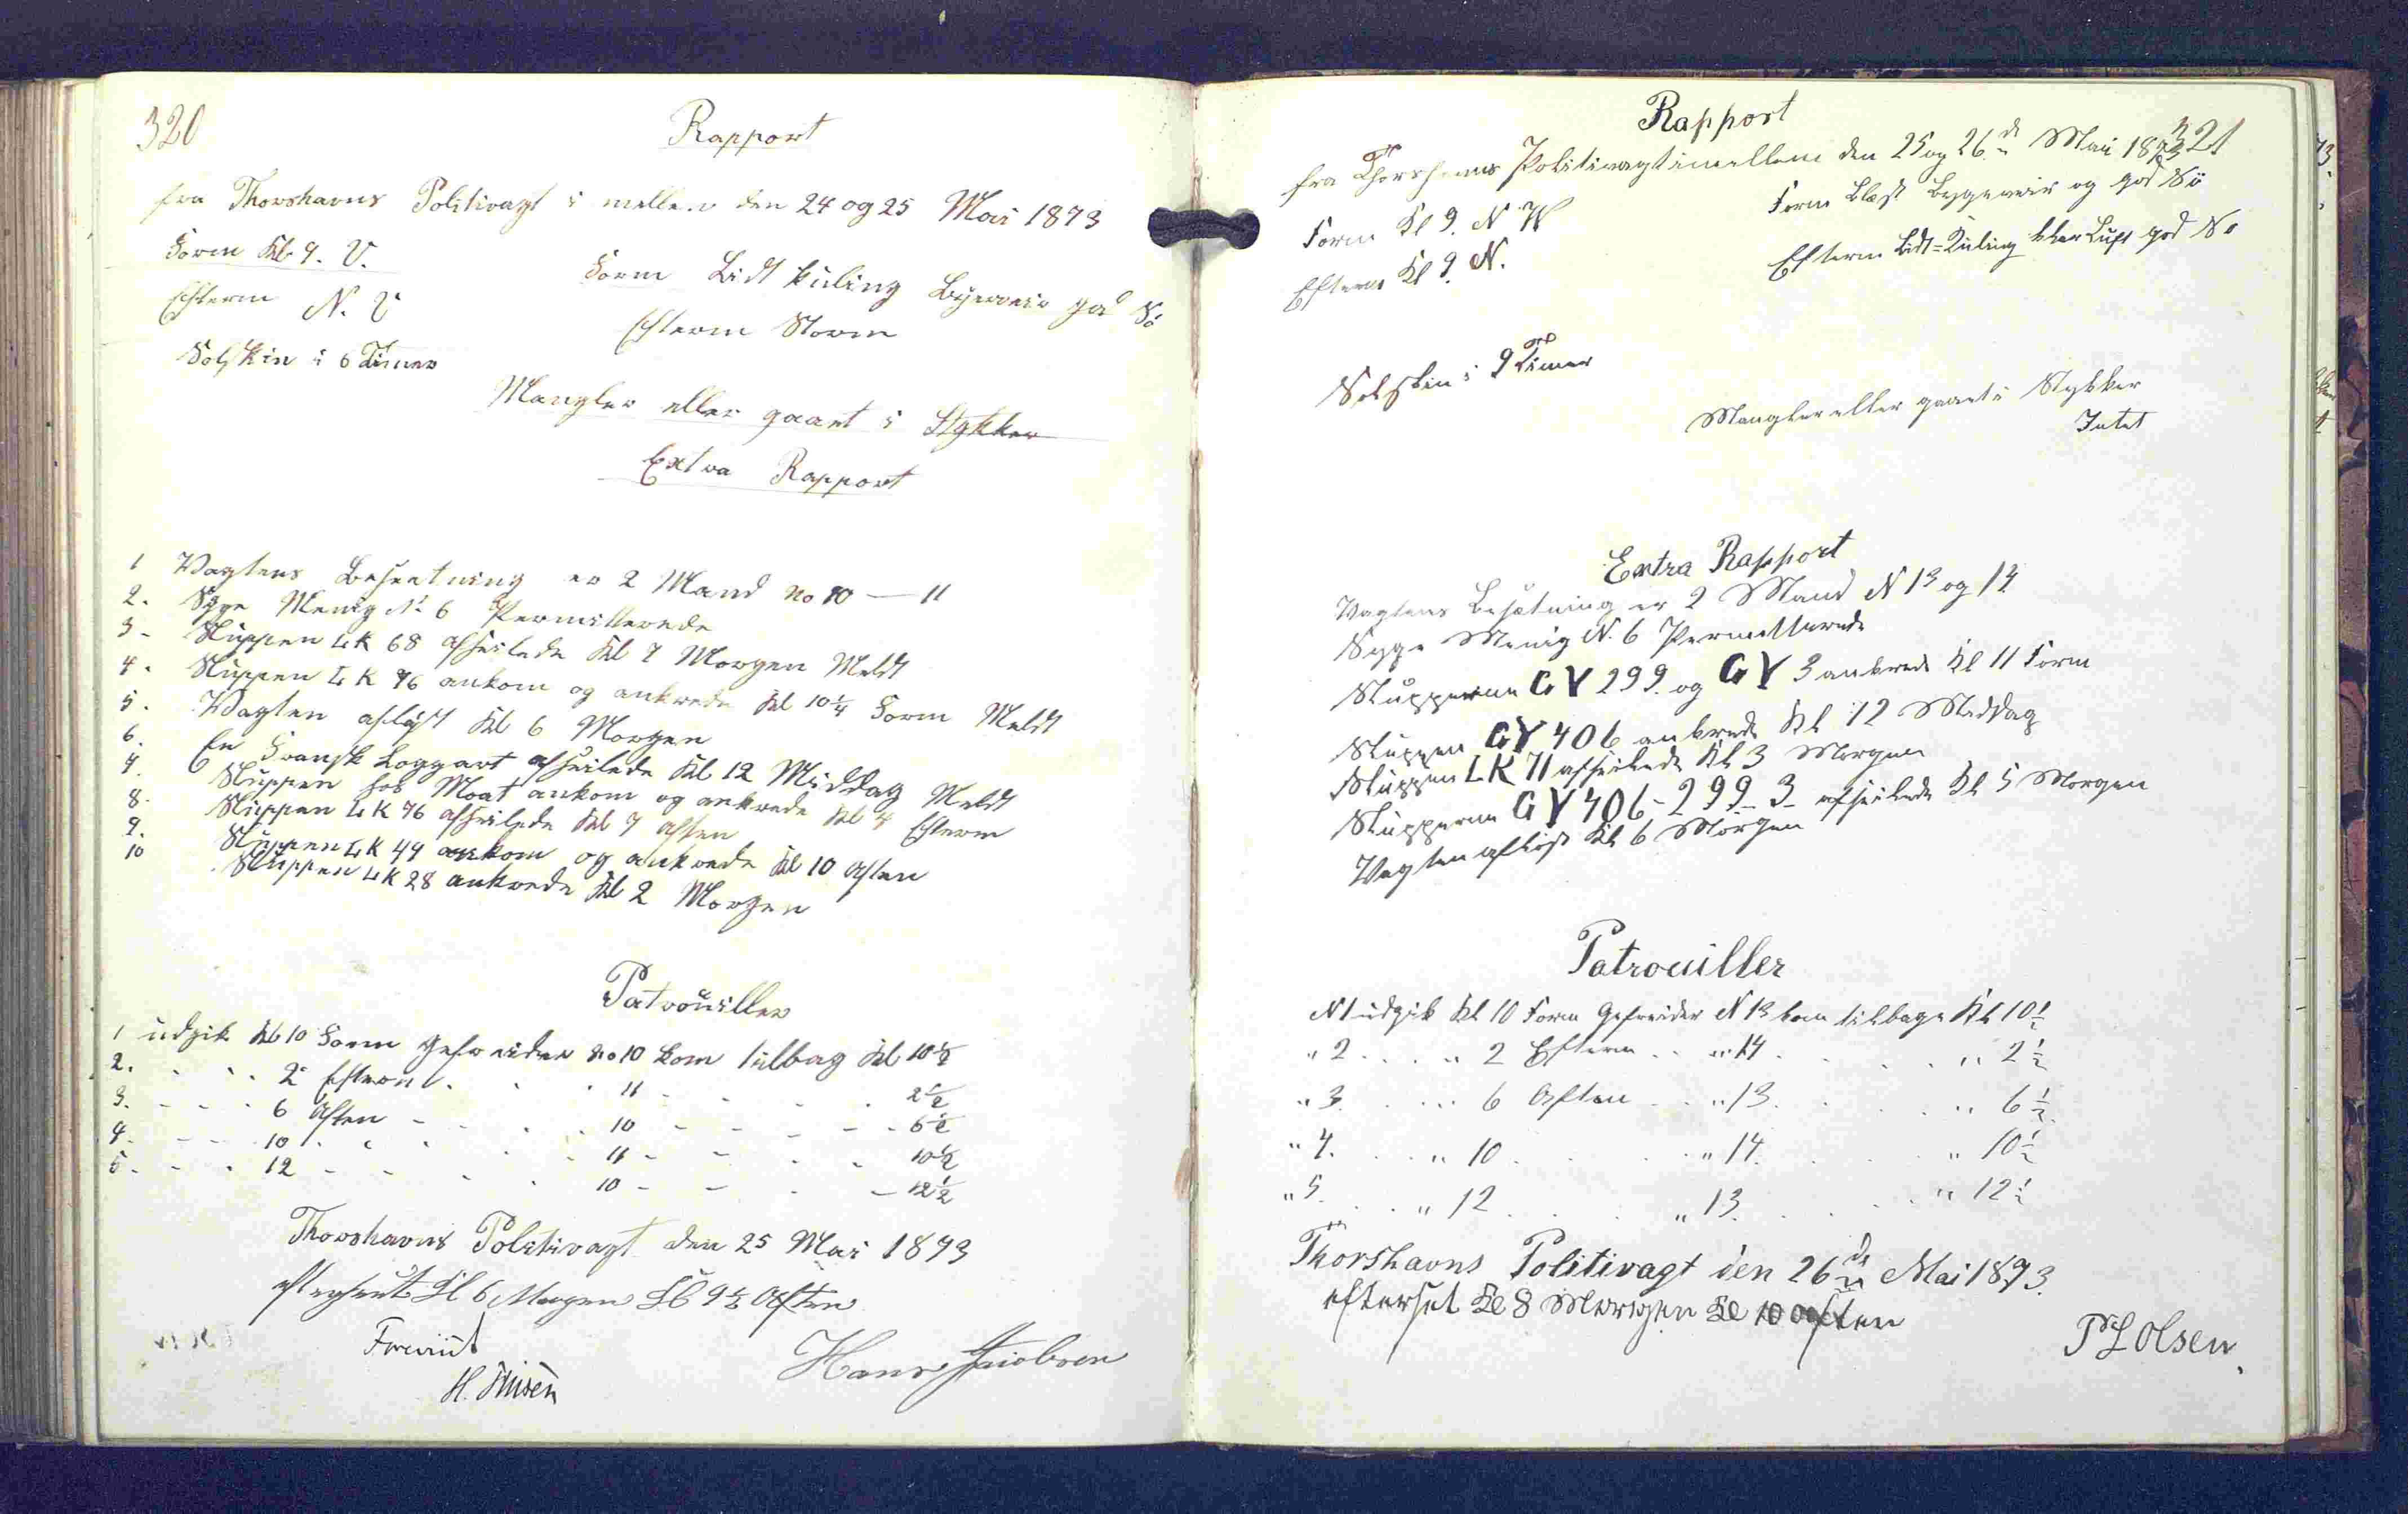 320
Rapport
fra Thorshavns Politivagt i mellem den 24 og 25 Mai 1873
Form Kl 9. V.
Form Lidt kuling Byeveir god Sö
Efterm N. V
Efterm Storm
Solskin i 6 Timer
Mangler eller gaaet i Stykker
Extra Rapport
1 Vagtens Besætning er 2 Mand No 10 — 11
2. Syge Menig No 6 Permitterede
3 - Sluppen LK 68 afseilede Kl 7 Morgen Meldt
4. Sluppen LK 76 ankom og ankrede Kl 10 1/4 Form Meldt
5. Vagten aflöst Kl 6 Morgen
6. En Fransk Loggart afseilede Kl 12 Middag Meldt
7. Sluppen ankom og ankrede Kl 4 Efterm
8. Sluppen LK 76 afseilede Kl 7 Aften
9. Sluppen LK 49 ankom og ankrede Kl 10 Aften
10 Sluppen LK 28 ankrede Kl 2 Morgen
Patrouiller
1 udgik Kl 10 Form Gefreider No 10 kom tilbag Kl 10 1/2
2. - - - 2 Efterm - - 11 - - - 2 1/2
3. - - - 6 Aften - - 10 - - - 6 1/2
4. - - - 10 - - - 11 - - - 10 1/2
5. - - - 12 - - - 10 - - - 12 1/2
Thorshavns Politivagt den 25 Mai 1873
efterseet Kl 6 Morgen Kl 9 1/2 Aften
Hans Jacobsen
321
Rapport
fra Thorshavns Politivagt imellem den 25 og 26 de Mai 1873
Form Kl 9. N W
Form Blæst Bygeveir og god Sö
Efterm Kl 9. N.
Efterm Lidt=Kuling klar Luft god Sö
Solskin i 9 Timer
Mangler eller gaaet i Stykker
Intet
Extra Rapport
Vagtens Besætning er 2 Mand N 13 og 14
Syge Menig N. 6 Permetterede
Slupperne GY 299. og GY 3 ankrede Kl 11 Form
Sluppen GY 406 ankrede Kl 12 Middag
Sluppen LK 71 afseilede Kl 3 Morgen
Slupperne GY 406 - 299 - 3 afseilede Kl 5 Morgen
Vagten aflöst Kl 6 Morgen
Patrouiller
N 1 udgik Kl 10 Form Gefreider N 13 kom tilbage Kl 10 1/2
" 2 . . . " 2 Efterm . . " 14 . . . " 2 1/2
" 3 . . . " 6 Aften . . " 13 . . . " 6 1/2
" 4. . . . " 10 . . . " 14. . . . " 10 1/2
" 5 . . . " 12 . . . " 13. . . . " 12 1/2
Thorshavns Politivagt den 26 de Mai 1873.
efterset Kl 8 Morgen Kl 10 Aften
P L Olsen